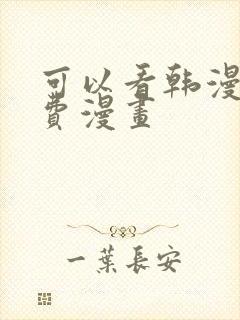 可以看韩漫
費漫畫
一葉長安